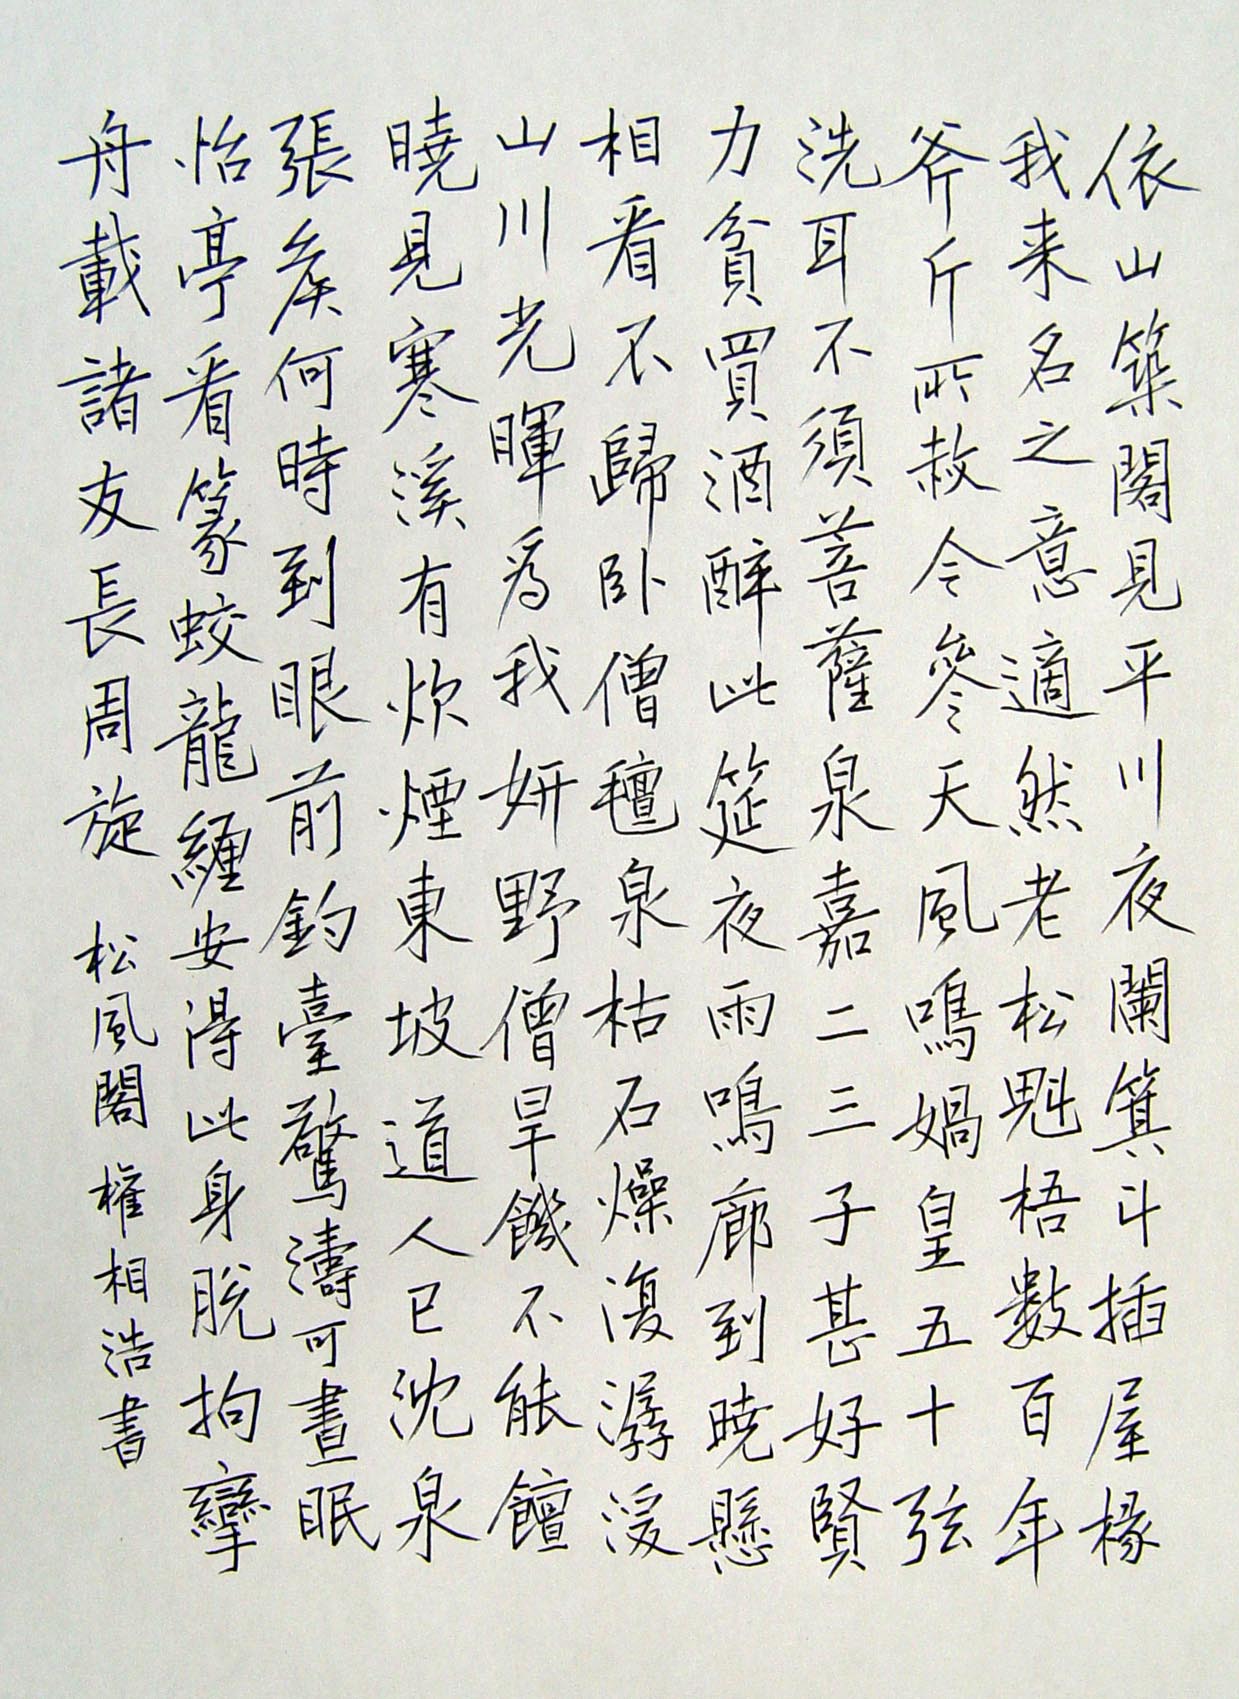 依山築閣見平川夜闌箕斗插屋椽
我来名之意適然老松魁梧數百年
斧斤所赦今參天風鳴媧皇五十弦
洗耳不須菩薩泉嘉二三子甚好賢
力貧買酒醉此筵夜雨鳴廊到曉懸
相看不歸卧僧氊泉枯石燥復潺湲
山川光暉爲我妍野僧旱饑不能饘
曉見寒溪有炊煙東坡道人已沈泉
張矦何時到眼前釣臺驚濤可晝眠
怡亭看篆蛟龍纏安得此身脫拘攣
舟載諸友長周旋 松風閣 權相浩書